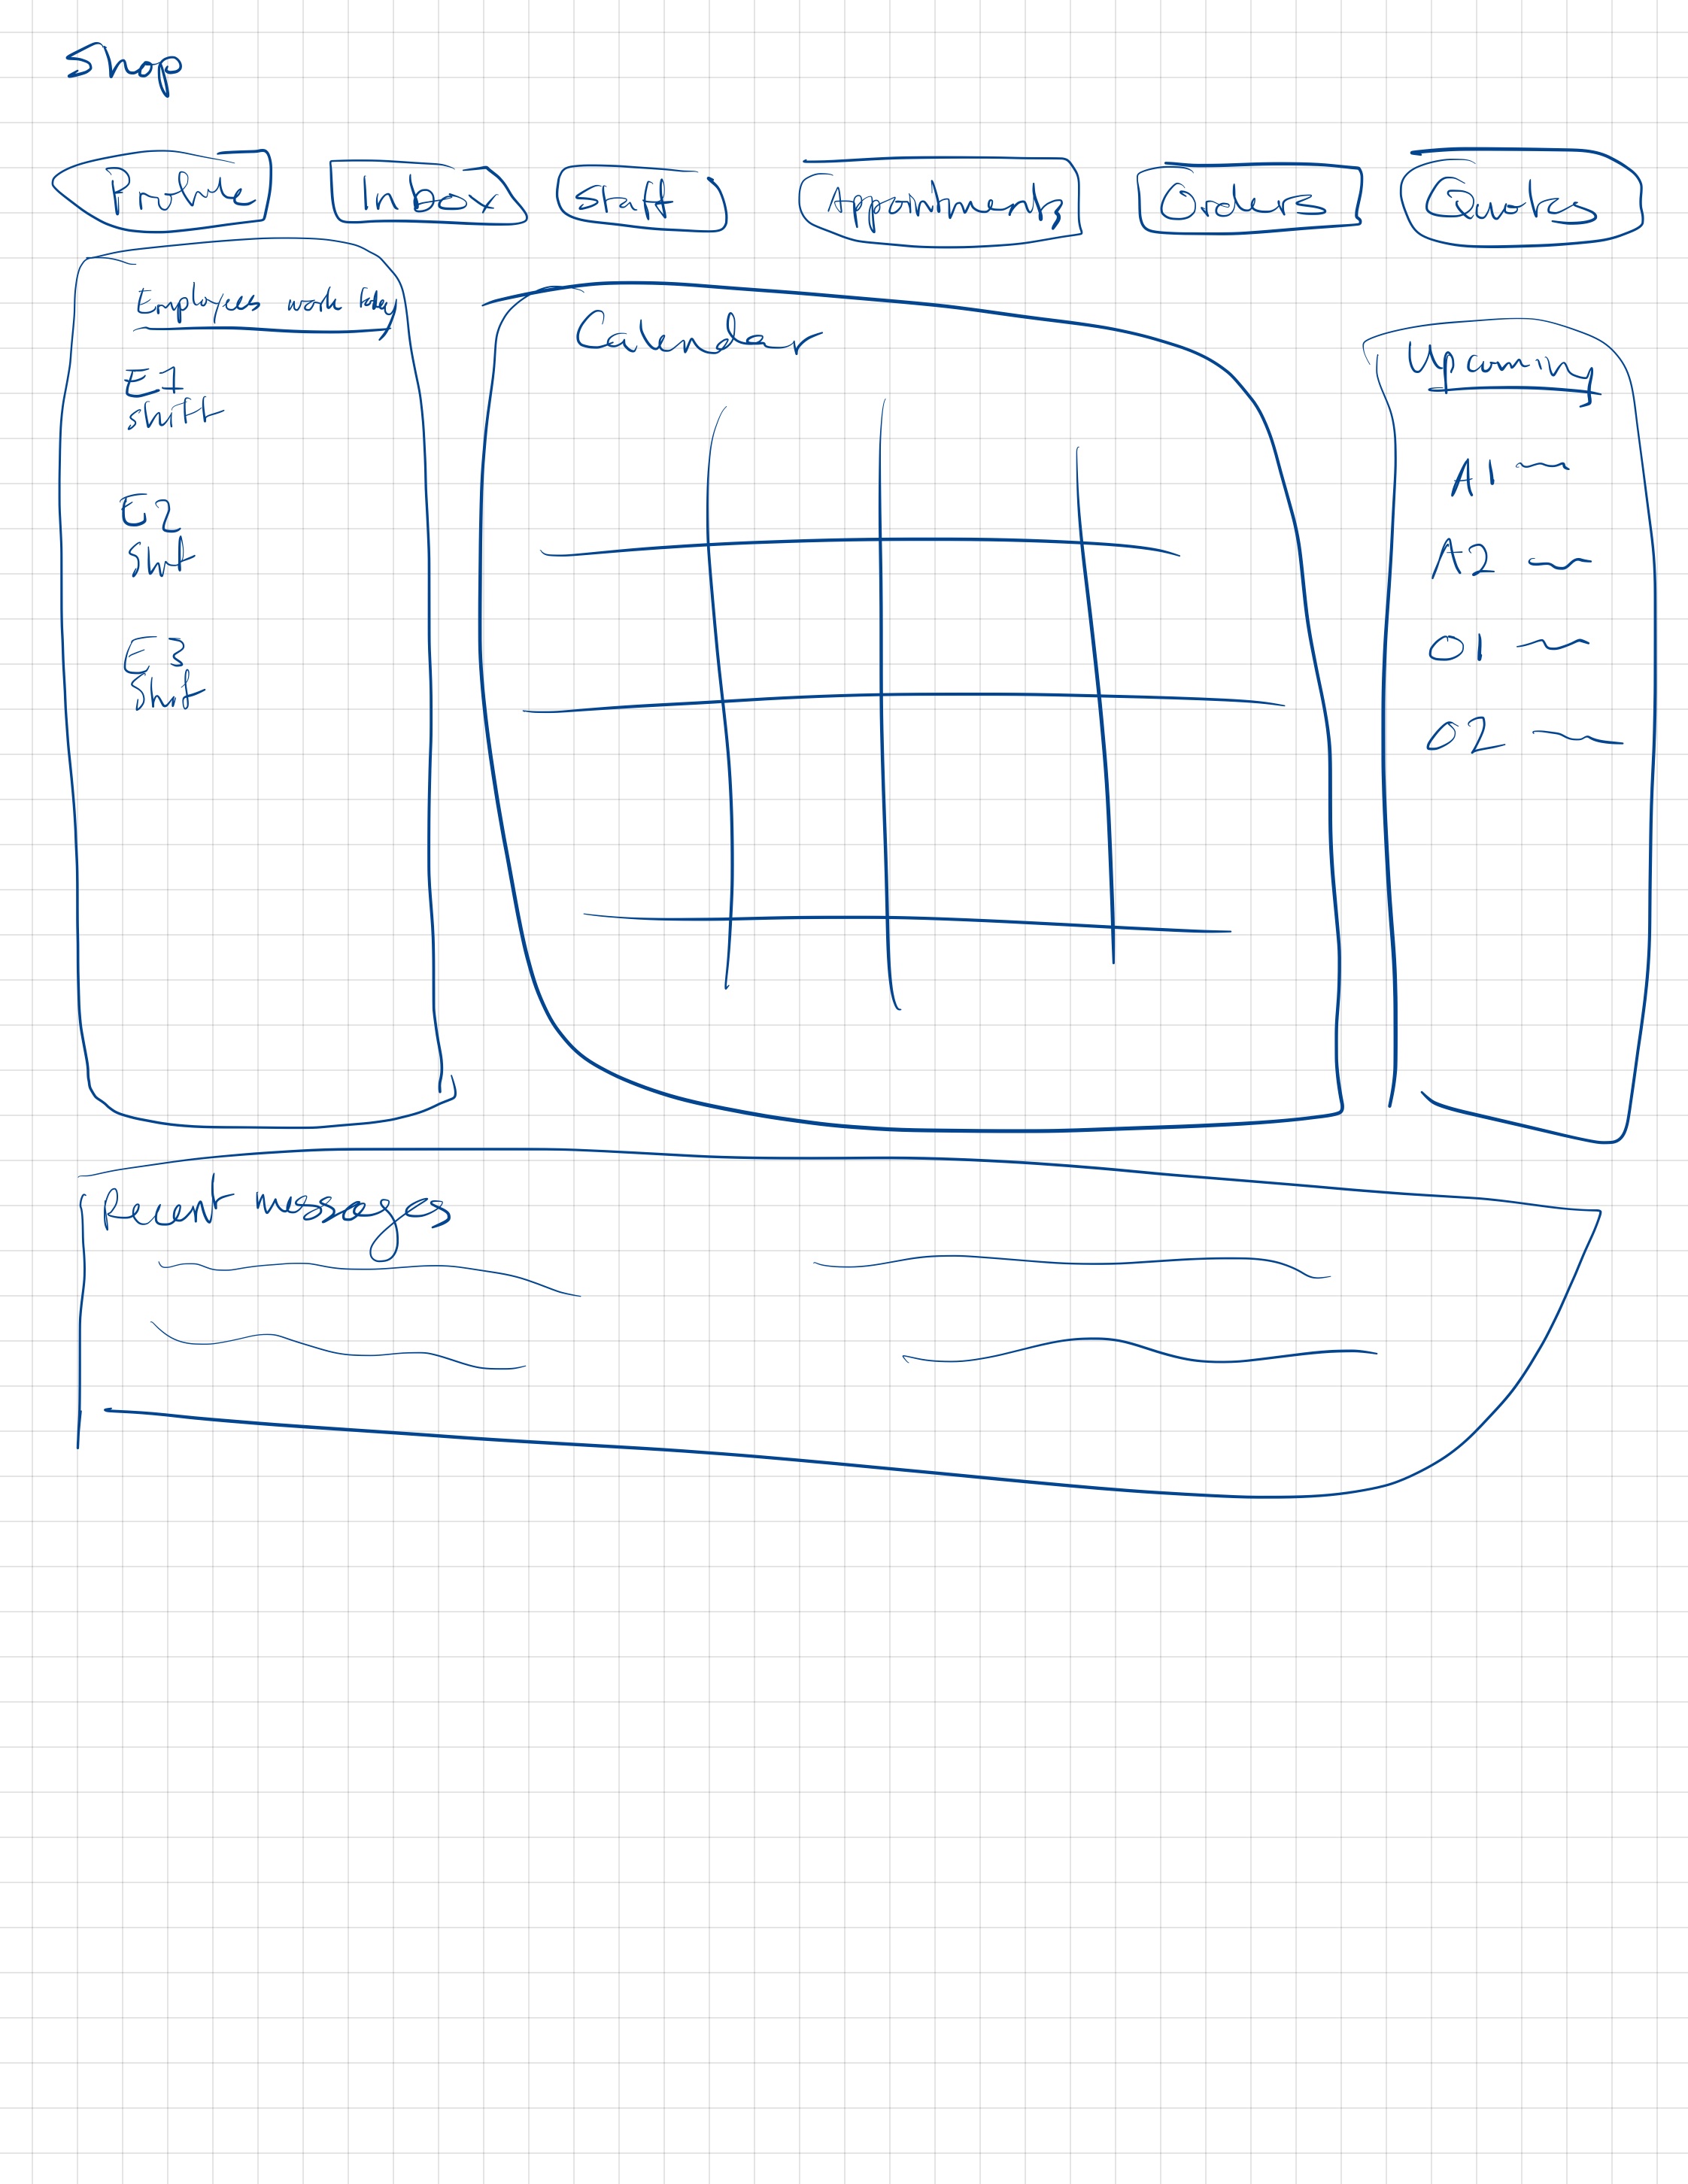 Shop
Profile Inbox Staff Appointments Orders Quotes
Employees work today
E1
shift
E2
Shif
E3
Shif
Calendar
Upcoming
A1
A2
O1
O2
Recent messages